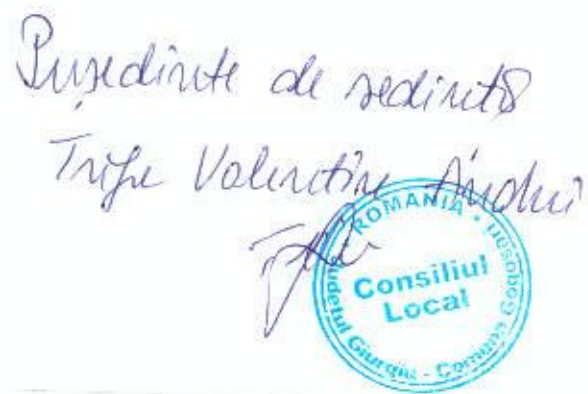 Preşedinte de sedintă
Trife Valentin Andrei
ROMANIA
Consiliul
Local
Judetul Giurgiu - Comuna Gogosari